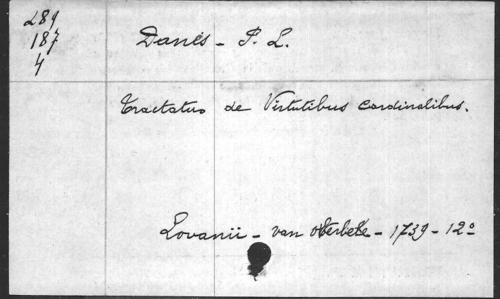 289
187
4
Danes - P. L.
Tractatus de Virtutibus cardinalibus.
Lovanii - van Overbeke - 1739 - 12°